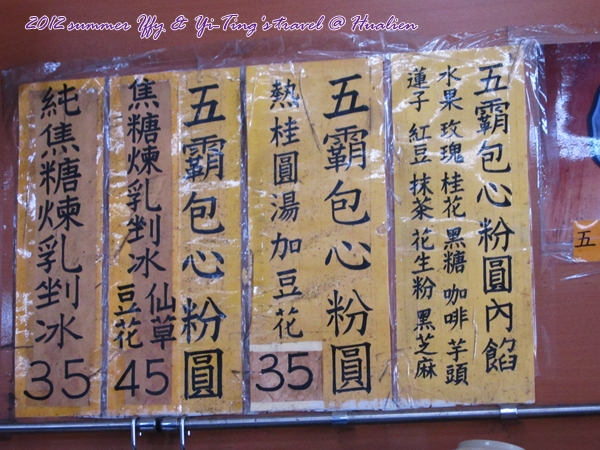 2012 summer Iffy & Yi-Ting's travel @ Hualien
五霸包心粉圓內餡
水果 玫瑰 桂花 黑糖 咖啡 芋頭
蓮子 紅豆 抹茶 花生粉 黑芝麻
五霸包心粉圓
熱桂圓湯加豆花
35
五霸包心粉圓
焦糖煉乳剉冰
仙草
豆花
45
純焦糖煉乳剉冰
35
五